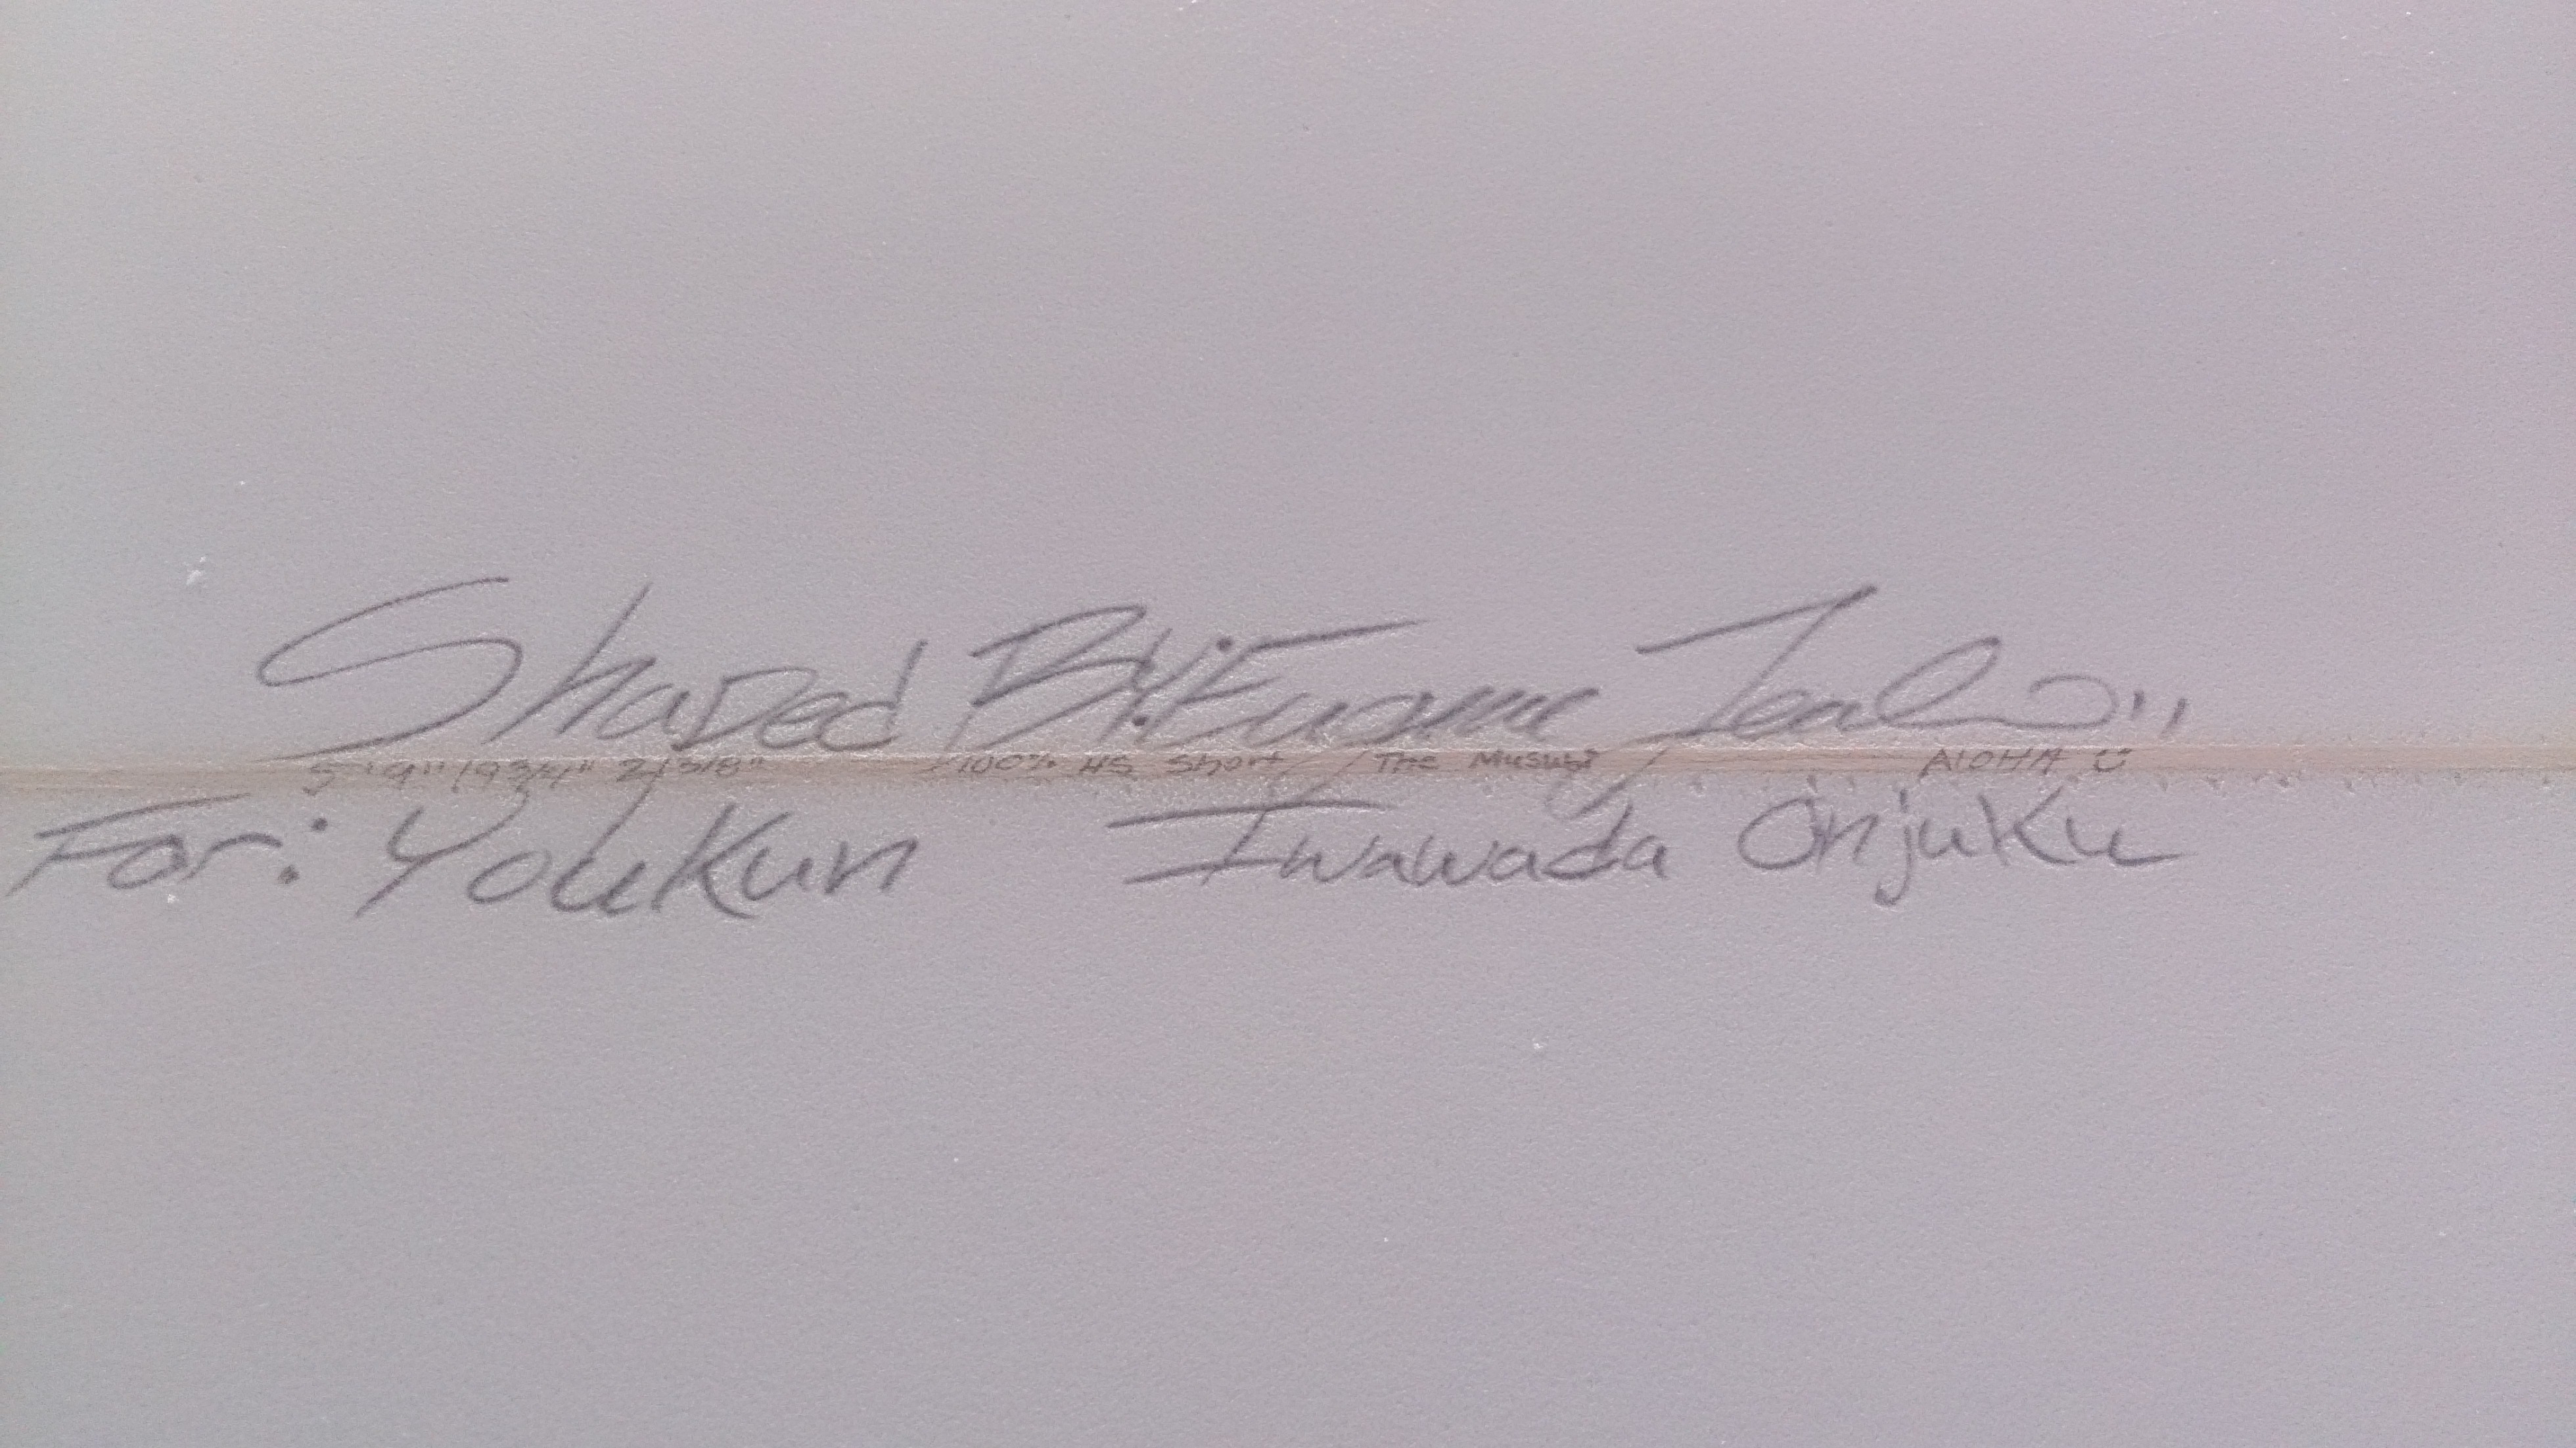 Shaped By: Eugene
5'9" 19 3/4" 2 3/8" 100% HS Short The Musubi ALOHA
For: Youkun Iwawada Onjuku